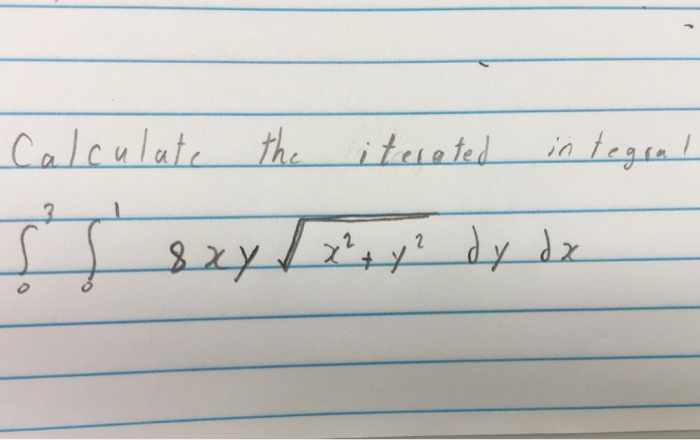 Calculate the iterated integral
∫₀³ ∫₀¹ 8xy√(x² + y²) dy dx